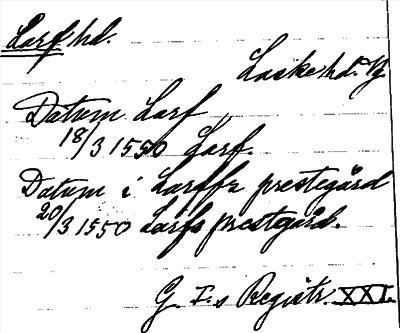 Larf sn.
Laske hd. Vg.
Datum Larf
18/3 1550 Larf.
Datum i Larffz prestegård
20/3 1550 Larfs prestgård.
G. I:s Registr. XXI.